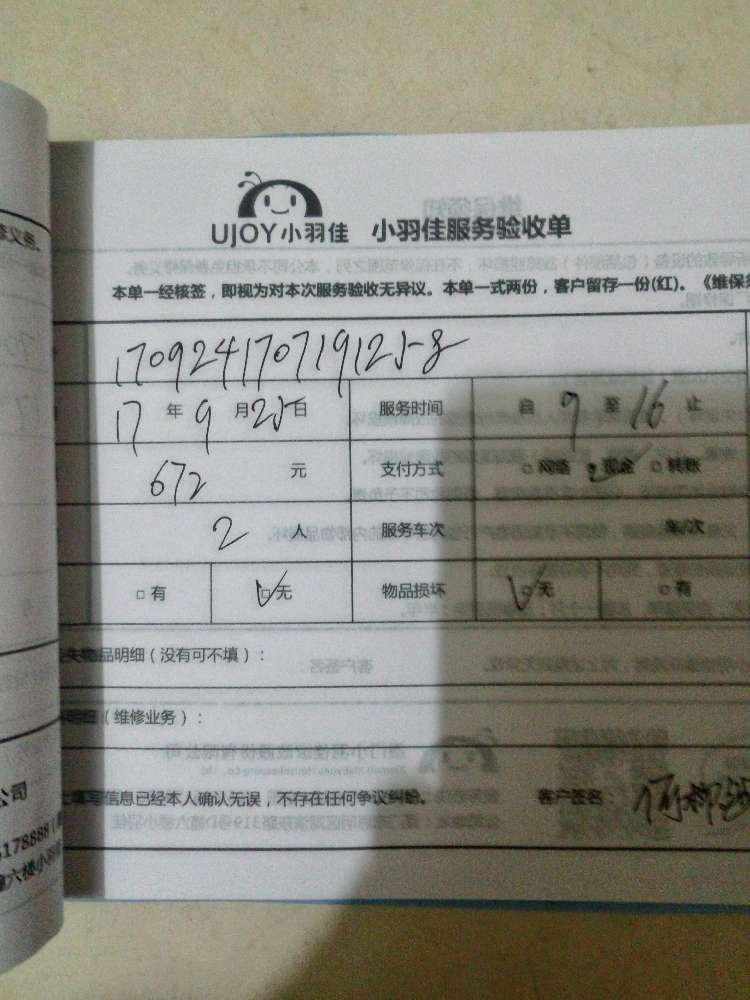 UJOY小羽佳 小羽佳服务验收单
本单一经核签，即视为对本次服务验收无异议。本单一式两份，客户留存一份(红)。《维保
170924170719125-8
17 年 9 月 25 日 服务时间 自 9 至 16 止
672 元 支付方式 □ 网络 □ 现金 □ 转账
2 人 服务车次 车/次
□ 有 □ 无 物品损坏 □ 无 □ 有
失物品明细（没有可不填）：
明细（维修业务）：
填写信息已经本人确认无误，不存在任何争议纠纷。 客户签名：
公司
5178888
六楼小羽